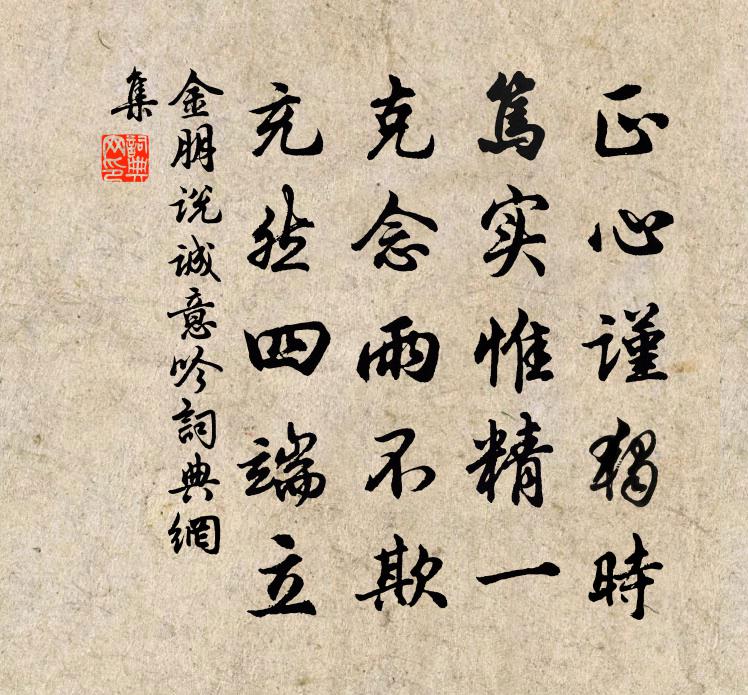 正心谨獨時
篤实惟精一
克念雨不欺
充然四端立
金朋说诚意吟詞典網
集
詞典
网印